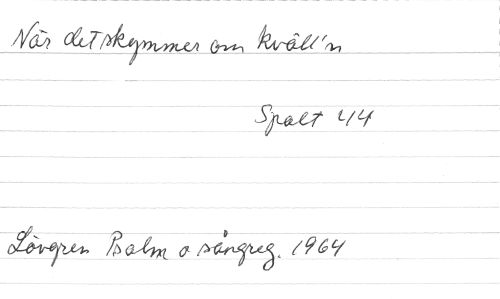 När det skymmer om kväll'n
Spalt 414
Lövgren Psalm o sångreg. 1964